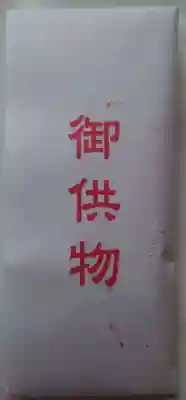 御供物